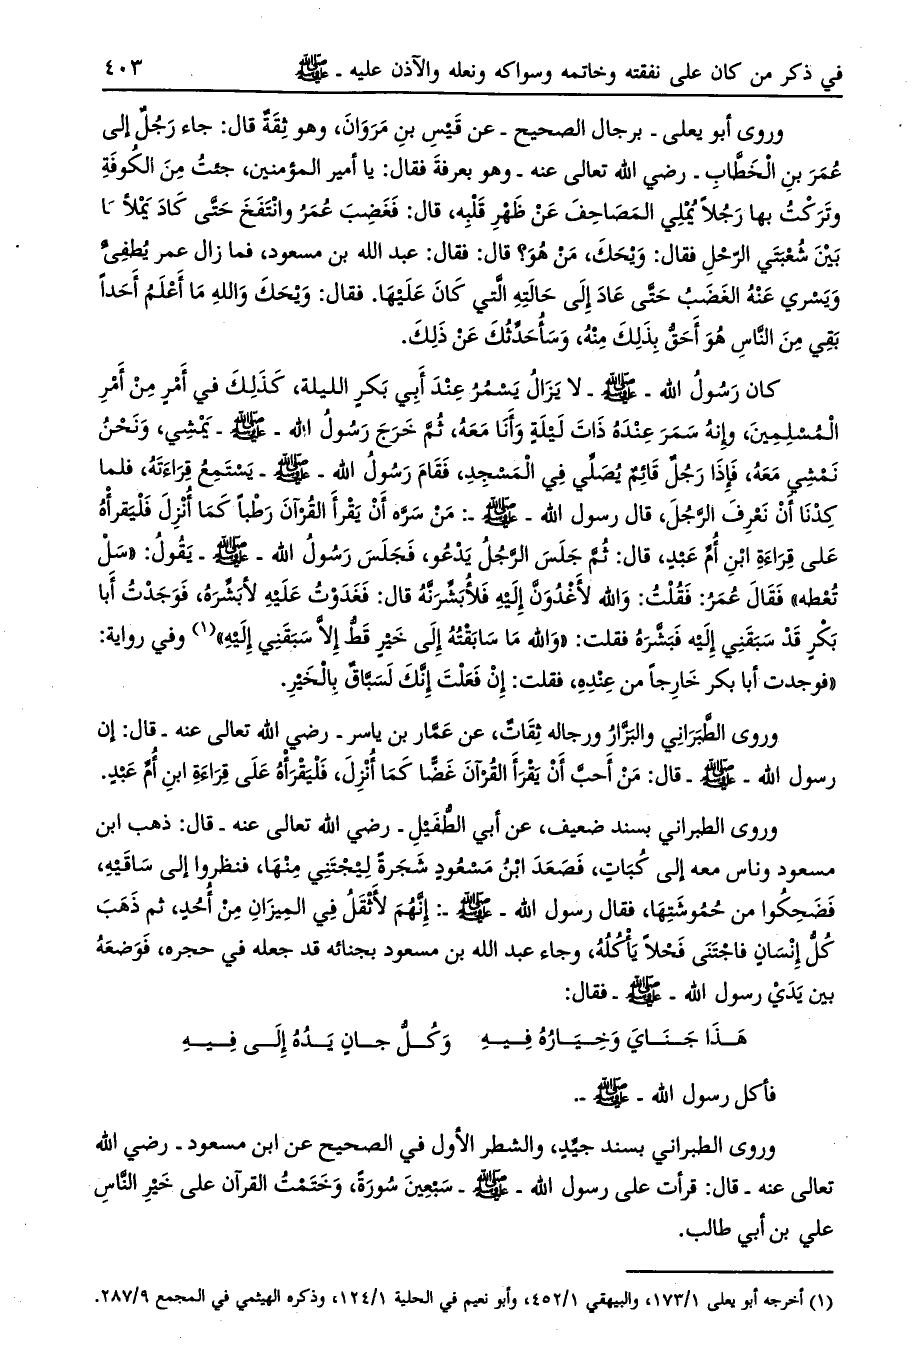 في ذكر من كان على نفقته وخاتمه وسواكه ونعله والآذن عليه ـ ﷺ ٤٠٣
وروى أبو يعلى ـ برجال الصحيح ـ عن قَيْسِ بنِ مَرَوَانَ، وهو ثِقَةٌ قال: جاء رَجُلٌ إلى
عُمَرَ بنِ الْخَطَّابِ ـ رضي الله تعالى عنه ـ وهو بعرفةَ فقال: يا أمير المؤمنين، جئتُ مِنَ الكُوفَةِ
وتَرَكْتُ بها رَجُلاً يُمْلِي المَصَاحِفَ عَنْ ظَهْرِ قَلْبِه، قال: فَغَضِبَ عُمَرُ وانْتَفَخَ حَتَّى كَادَ يَمْلأ مَا
بَيْنَ شُعْبَتَي الرّحْلِ فقال: وَيْحَكَ، مَنْ هُوَ؟ قال: فقال: عبد الله بن مسعود، فما زال عمر يُطفِىءُ
وَيَسْري عَنْهُ الغَضَبُ حَتَّى عَادَ إِلَى حَالَتِهِ الَّتي كَانَ عَلَيْهَا. فقال: وَيْحَكَ وَاللهِ مَا أَعْلَمُ أَحَداً
بَقِي مِنَ النَّاسِ هُوَ أَحَقُّ بِذَلِكَ مِنْهُ، وَسَأُحَدِّثُكَ عَنْ ذَلِكَ.
كان رَسُولُ الله ـ ﷺ ـ لا يَزَالُ يَسْمُرُ عِنْدَ أَبِي بَكرٍ الليلة، كَذَلِكَ في أَمْرٍ مِنْ أَمْرِ
الْمُسْلِمِينَ، وإنهُ سَمَرَ عِنْدَهُ ذَاتَ لَيْلَةٍ وَأَنَا مَعَهُ، ثُمَّ خَرَجَ رَسُولُ الله ـ ﷺ ـ يَمْشِي، وَنَحْنُ
نَمْشِي مَعَهُ، فَإِذَا رَجُلٌ قَائِمٌ يُصَلِّي فِي الْمَسْجِدِ، فَقَامَ رَسُولُ الله ـ ﷺ ـ يَسْتَمِعُ قِرَاءَتَهُ، فلما
كِدْنَا أَنْ نَعْرِفَ الرَّجُلَ، قال رسول الله ـ ﷺ ـ: مَنْ سَرَّه أَنْ يَقْرأَ القُرْآنَ رَطْباً كَمَا أُنْزِلَ فَلْيَقرأْهُ
عَلى قِرَاءَةِ ابْنِ أُمِّ عَبْدٍ، قال: ثُمَّ جَلَسَ الرَّجُلُ يَدْعُو، فَجَلَسَ رَسُولُ الله ـ ﷺ ـ يَقُولُ: «سَلْ
تُعْطه» فَقَالَ عُمَرُ: فَقُلْتُ: وَالله لأَغْدُوَنَّ إِلَيْهِ فَلأُبَشِّرَنَّهُ قال: فَغَدَوْتُ عَلَيْهِ لأبَشِّرَهُ، فَوَجَدْتُ أبا
بَكْرٍ قَدْ سَبَقَنِي إِلَيْه فَبَشَّرَهُ فقلت: «وَالله مَا سَابَقْتُهُ إِلَى خَيْرٍ قَطُّ إِلاَّ سَبَقَنِي إِلَيْهِ»(١) وفي رواية:
«فوجدت أبا بكر خَارِجاً من عِنْدِهِ، فقلت: إنْ فَعَلْتَ إِنَّكَ لَسَبَّاقٌ بِالْخَيْرِ.
وروى الطَّبَرَانِي والبَزَّارُ ورجاله ثِقَاتٌ، عن عَمَّار بن ياسر ـ رضي الله تعالى عنه ـ قال: إن
رسول الله ـ ﷺ ـ قال: مَنْ أَحَبَّ أَنْ يَقْرَأَ القُرْآنَ غَضًّا كَمَا أُنْزِلَ، فَلْيَقْرَأْهُ عَلَى قِرَاءَةِ ابنِ أُمِّ عَبْدٍ.
وروى الطبراني بسند ضعيف، عن أبي الطُّفَيْلِ ـ رضي الله تعالى عنه ـ قال: ذهب ابن
مسعود وناس معه إلى كُبَاتٍ، فَصَعَدَ ابْنُ مَسْعُودٍ شَجَرةً لِيَجْتَنِي مِنْهَا، فنظروا إلى سَاقَيْهِ،
فَضَحِكُوا من حُمُوشَتِهَا، فقال رسول الله ـ ﷺ ـ: إِنَّهُمَ لأَثْقَلُ فِي المِيزَانِ مِنْ أُحُدٍ، ثم ذَهَبَ
كُلُّ إِنْسَانٍ فاجْتَنَى فَحْلاً يَأْكُلُهُ، وجاء عبد الله بن مسعود بجنائه قد جعله في حجره، فَوَضعَهُ
بين يَدَيْ رسول الله ـ ﷺ ـ فقال:
هَذَا جَنَايَ وَخِيَارُهُ فِيهِ وَكُلُّ جانٍ يَدُهُ إِلَى فِيهِ
فأكل رسول الله ـ ﷺ ـ.
وروى الطبراني بسند جيِّدٍ، والشطر الأول في الصحيح عن ابن مسعود ـ رضي الله
تعالى عنه ـ قال: قرأت على رسول الله ـ ﷺ ـ سَبْعِينَ سُورَةً، وَخَتَمْتُ القرآن على خَيْرِ النَّاسِ
علي بن أبي طالب.
(١) أخرجه أبو يعلى ١٧٣/١، والبيهقي ٤٥٢/١، وأبو نعيم في الحلية ١٢٤/١، وذكره الهيثمي في المجمع ٢٨٧/٩.